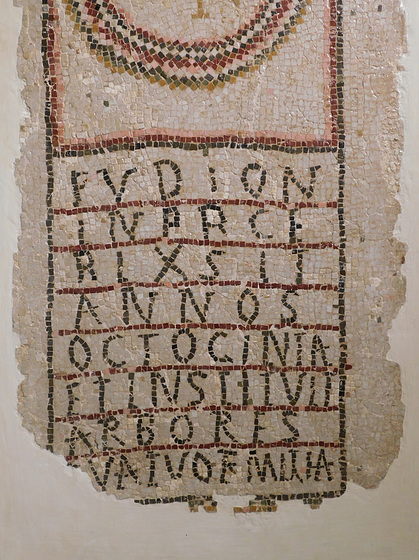 PV DION
IN PACE
BIXSIT
ANNOS
OCTOGINTA
ET INSTITVIT
ARBORES
QVATVOR MILIA